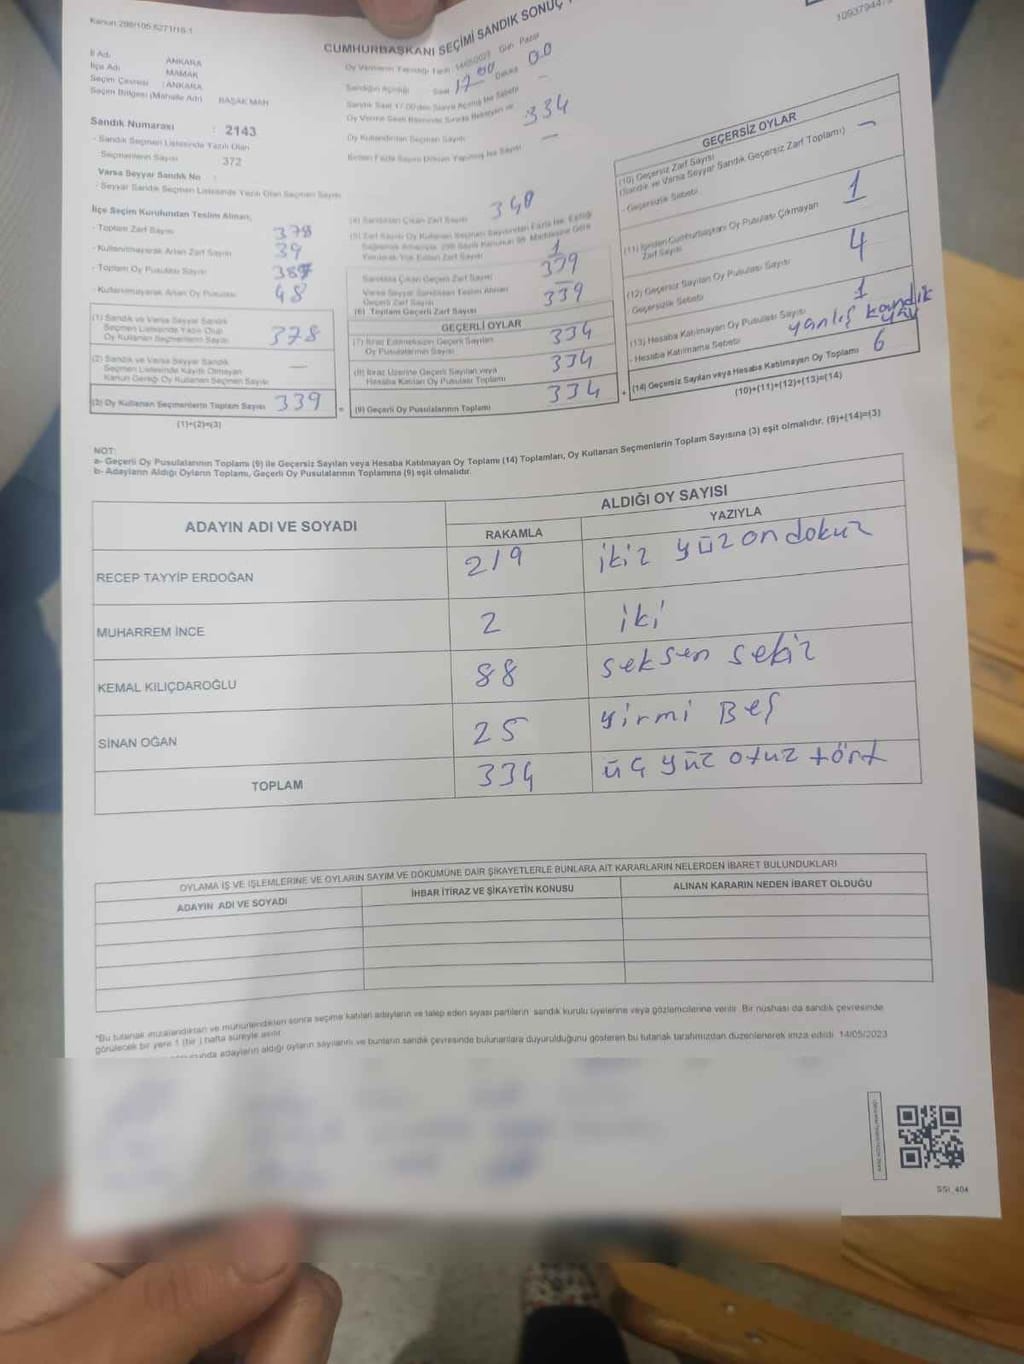 Kanun:298/105,6271/18-1
CUMHURBAŞKANI SEÇİMİ SANDIK SONUÇ
1093794
İl Adı ANKARA
İlçe Adı MAMAK
Seçim Çevresi : ANKARA
Seçim Bölgesi (Mahalle Adı) BAŞAK MAH
Sandık Numarası : 2143
- Sandık Seçmen Listesinde Yazılı Olan
Seçmenlerin Sayısı 372
Varsa Seyyar Sandık No :
- Seyyar Sandık Seçmen Listesinde Yazılı Olan Seçmen Sayısı
İlçe Seçim Kurulundan Teslim Alınan;
- Toplam Zarf Sayısı 378
- Kullanılmayarak Artan Zarf Sayısı 39
- Toplam Oy Pusulası Sayısı 387
- Kullanılmayarak Artan Oy Pusulası 48
(1) Sandık ve Varsa Seyyar Sandık
Seçmen Listesinde Yazılı Olup
Oy Kullanan Seçmenlerin Sayısı 378
(2) Sandık ve Varsa Seyyar Sandık
Seçmen Listesinde Kayıtlı Olmayan
Kanun Gereği Oy Kullanan Seçmen Sayısı —
(3) Oy Kullanan Seçmenlerin Toplam Sayısı 339
(1)+(2)=(3)
Oy Vermenin Yapıldığı Tarih 14/05/2023 Gün Pazar
Sandığın Açıldığı Saat 17.00 Dakika 00
334
Oy Kullandırılan Seçmen Sayısı —
(4) Sandıktan Çıkan Zarf Sayısı 340
1
Sandıkta Çıkan Geçerli Zarf Sayısı 339
Varsa Seyyar Sandıktan Teslim Alınan
Geçerli Zarf Sayısı —
(6) Toplam Geçerli Zarf Sayısı 339
GEÇERLİ OYLAR
(7) İtiraz Edilmeksizin Geçerli Sayılan
Oy Pusulalarının Sayısı 334
(8) İtiraz Üzerine Geçerli Sayılan veya
Hesaba Katılan Oy Pusulası Toplamı 334
(9) Geçerli Oy Pusulalarının Toplamı 334
GEÇERSİZ OYLAR
(10) Geçersiz Zarf Sayısı
(Sandık ve Varsa Seyyar Sandık Geçersiz Zarf Toplamı) —
- Geçersizlik Sebebi
(11) İçinden Cumhurbaşkanı Oy Pusulası Çıkmayan
Zarf Sayısı 1
(12) Geçersiz Sayılan Oy Pusulası Sayısı 4
Geçersizlik Sebebi
(13) Hesaba Katılmayan Oy Pusulası Sayısı 1
- Hesaba Katılmama Sebebi yanlış
(14) Geçersiz Sayılan veya Hesaba Katılmayan Oy Toplamı 6
(10)+(11)+(12)+(13)=(14)
NOT:
a- Geçerli Oy Pusulalarının Toplamı (9) ile Geçersiz Sayılan veya Hesaba Katılmayan Oy Toplamı (14) Toplamları, Oy Kullanan Seçmenlerin Toplam Sayısına (3) eşit olmalıdır. (9)+(14)=(3)
b- Adayların Aldığı Oyların Toplamı, Geçerli Oy Pusulalarının Toplamına (9) eşit olmalıdır.
ADAYIN ADI VE SOYADI
ALDIĞI OY SAYISI
RAKAMLA YAZIYLA
RECEP TAYYİP ERDOĞAN 219 ikiz yüz on dokuz
MUHARREM İNCE 2 iki
KEMAL KILIÇDAROĞLU 88 seksen sekiz
SİNAN OĞAN 25 yirmi Beş
TOPLAM 334 üç yüz otuz tört
OYLAMA İŞ VE İŞLEMLERİNE VE OYLARIN SAYIM VE DÖKÜMÜNE DAİR ŞİKAYETLERLE BUNLARA AİT KARARLARIN NELERDEN İBARET BULUNDUKLARI
ADAYIN ADI VE SOYADI İHBAR İTİRAZ VE ŞİKAYETİN KONUSU ALINAN KARARIN NEDEN İBARET OLDUĞU
*Bu tutanak imzalandıktan ve mühürlendikten sonra seçime katılan adayların ve talep eden siyasi partilerin sandık kurulu üyelerine veya gözlemcilerine verilir. Bir nüshası da sandık çevresinde
görülecek bir yere 1 (bir) hafta süreyle asılır.
adayların aldığı oyların sayılarını ve bunların sandık çevresinde bulunanlara duyurulduğunu gösteren bu tutanak tarafımızdan düzenlenerek imza edildi. 14/05/2023
SSI_404